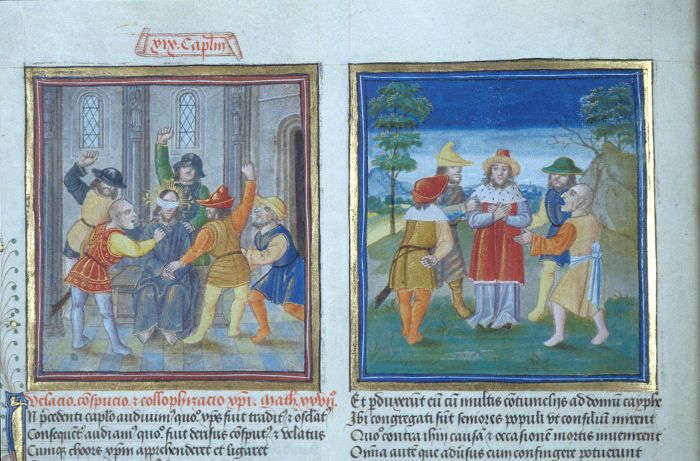 xix. Caplm
Velacio, cōspucio, et collophizacio xpi. Math. xxvi°.
In p̄cedenti caplo audiuim' quo. xps fuit tradit' et osclat'
Consequēt' audiam' quo. fuit derisus cōsput' et velatus
Cumque choors xpm apprehenderet et ligaret
Et pduxerūt eū cū multis cōtumelijs ad domū cayphe
Ibi congregati sūt seniores populi vt consiliū inirent
Quo contra ihm causā et occasionē mortis inuenirent
Omīa autē que adūsus eum confingere potuerunt